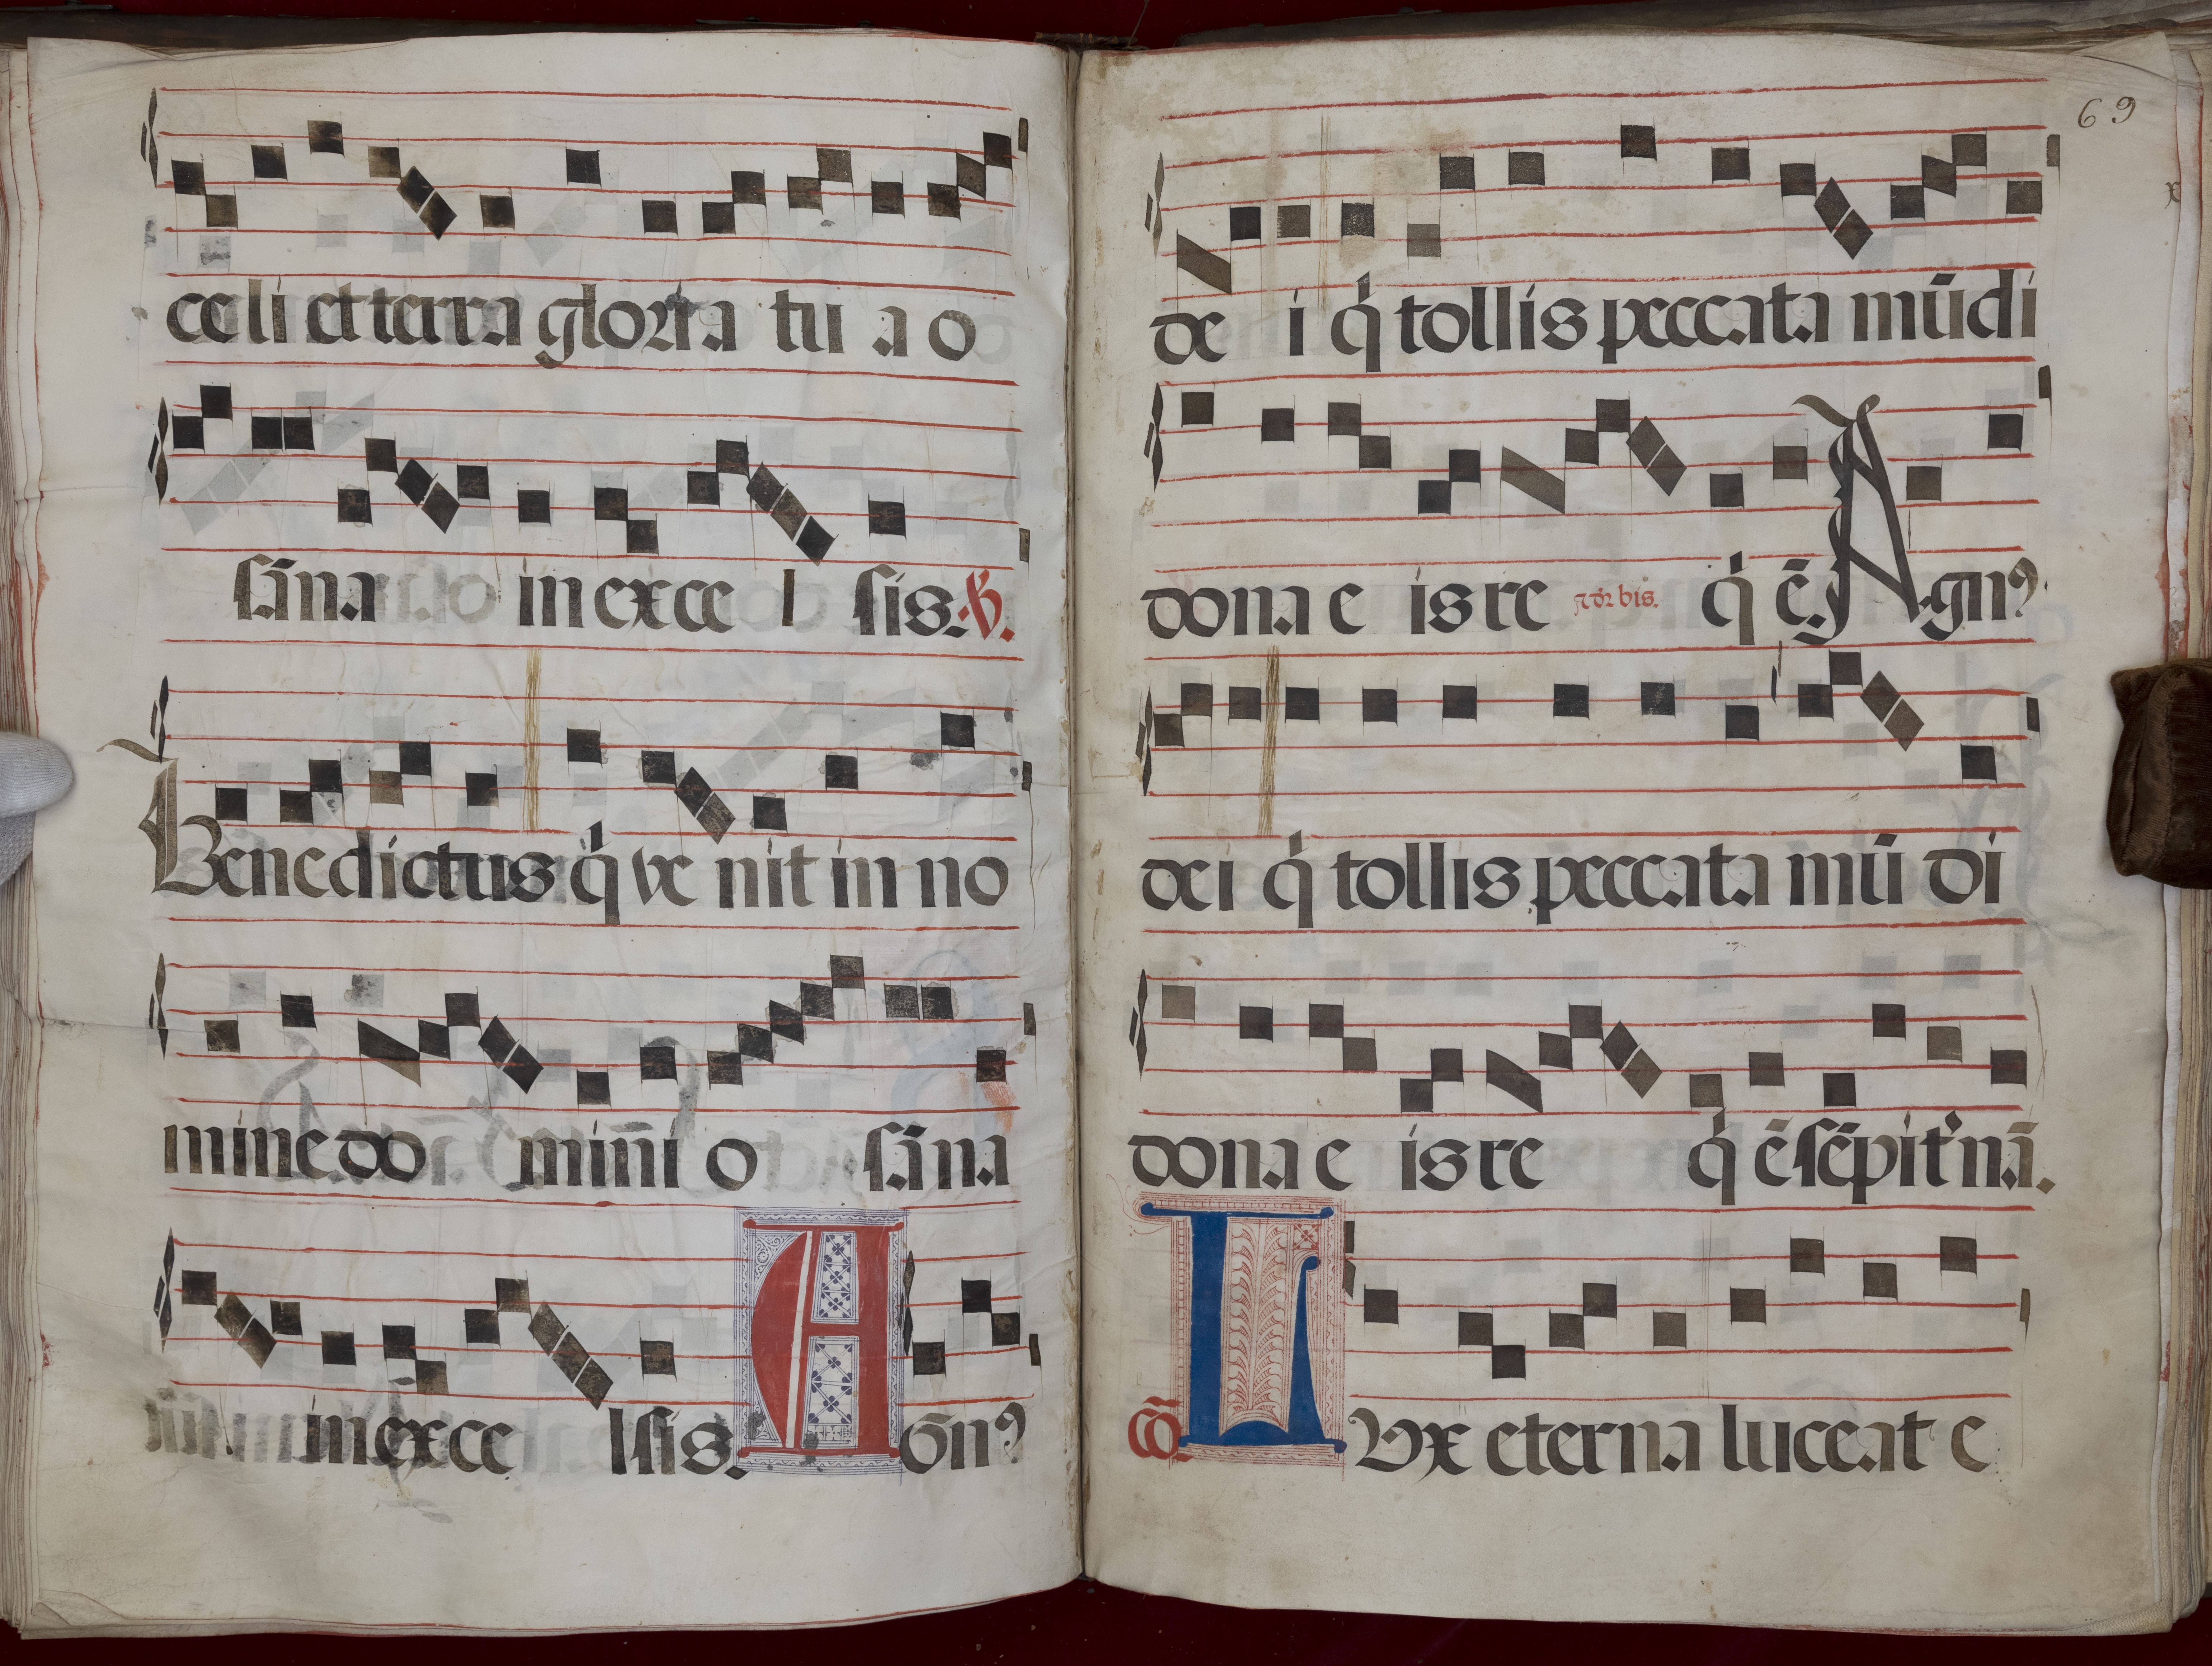 celi et terra gloria tu a o
sāna in exce l sis. ℣.
Benedictus q̇ ve nit in no
mine do min̄i o sāna
in exce lsis. A Gnꝰ
69
de i q̇ tollis peccata mūdi
dona e is re bis. q̇ ē. Agnꝰ
dei q̇ tollis peccata mū di
dona e is re q̇ ē sēpit'nā.
cō LVx eterna luceat e